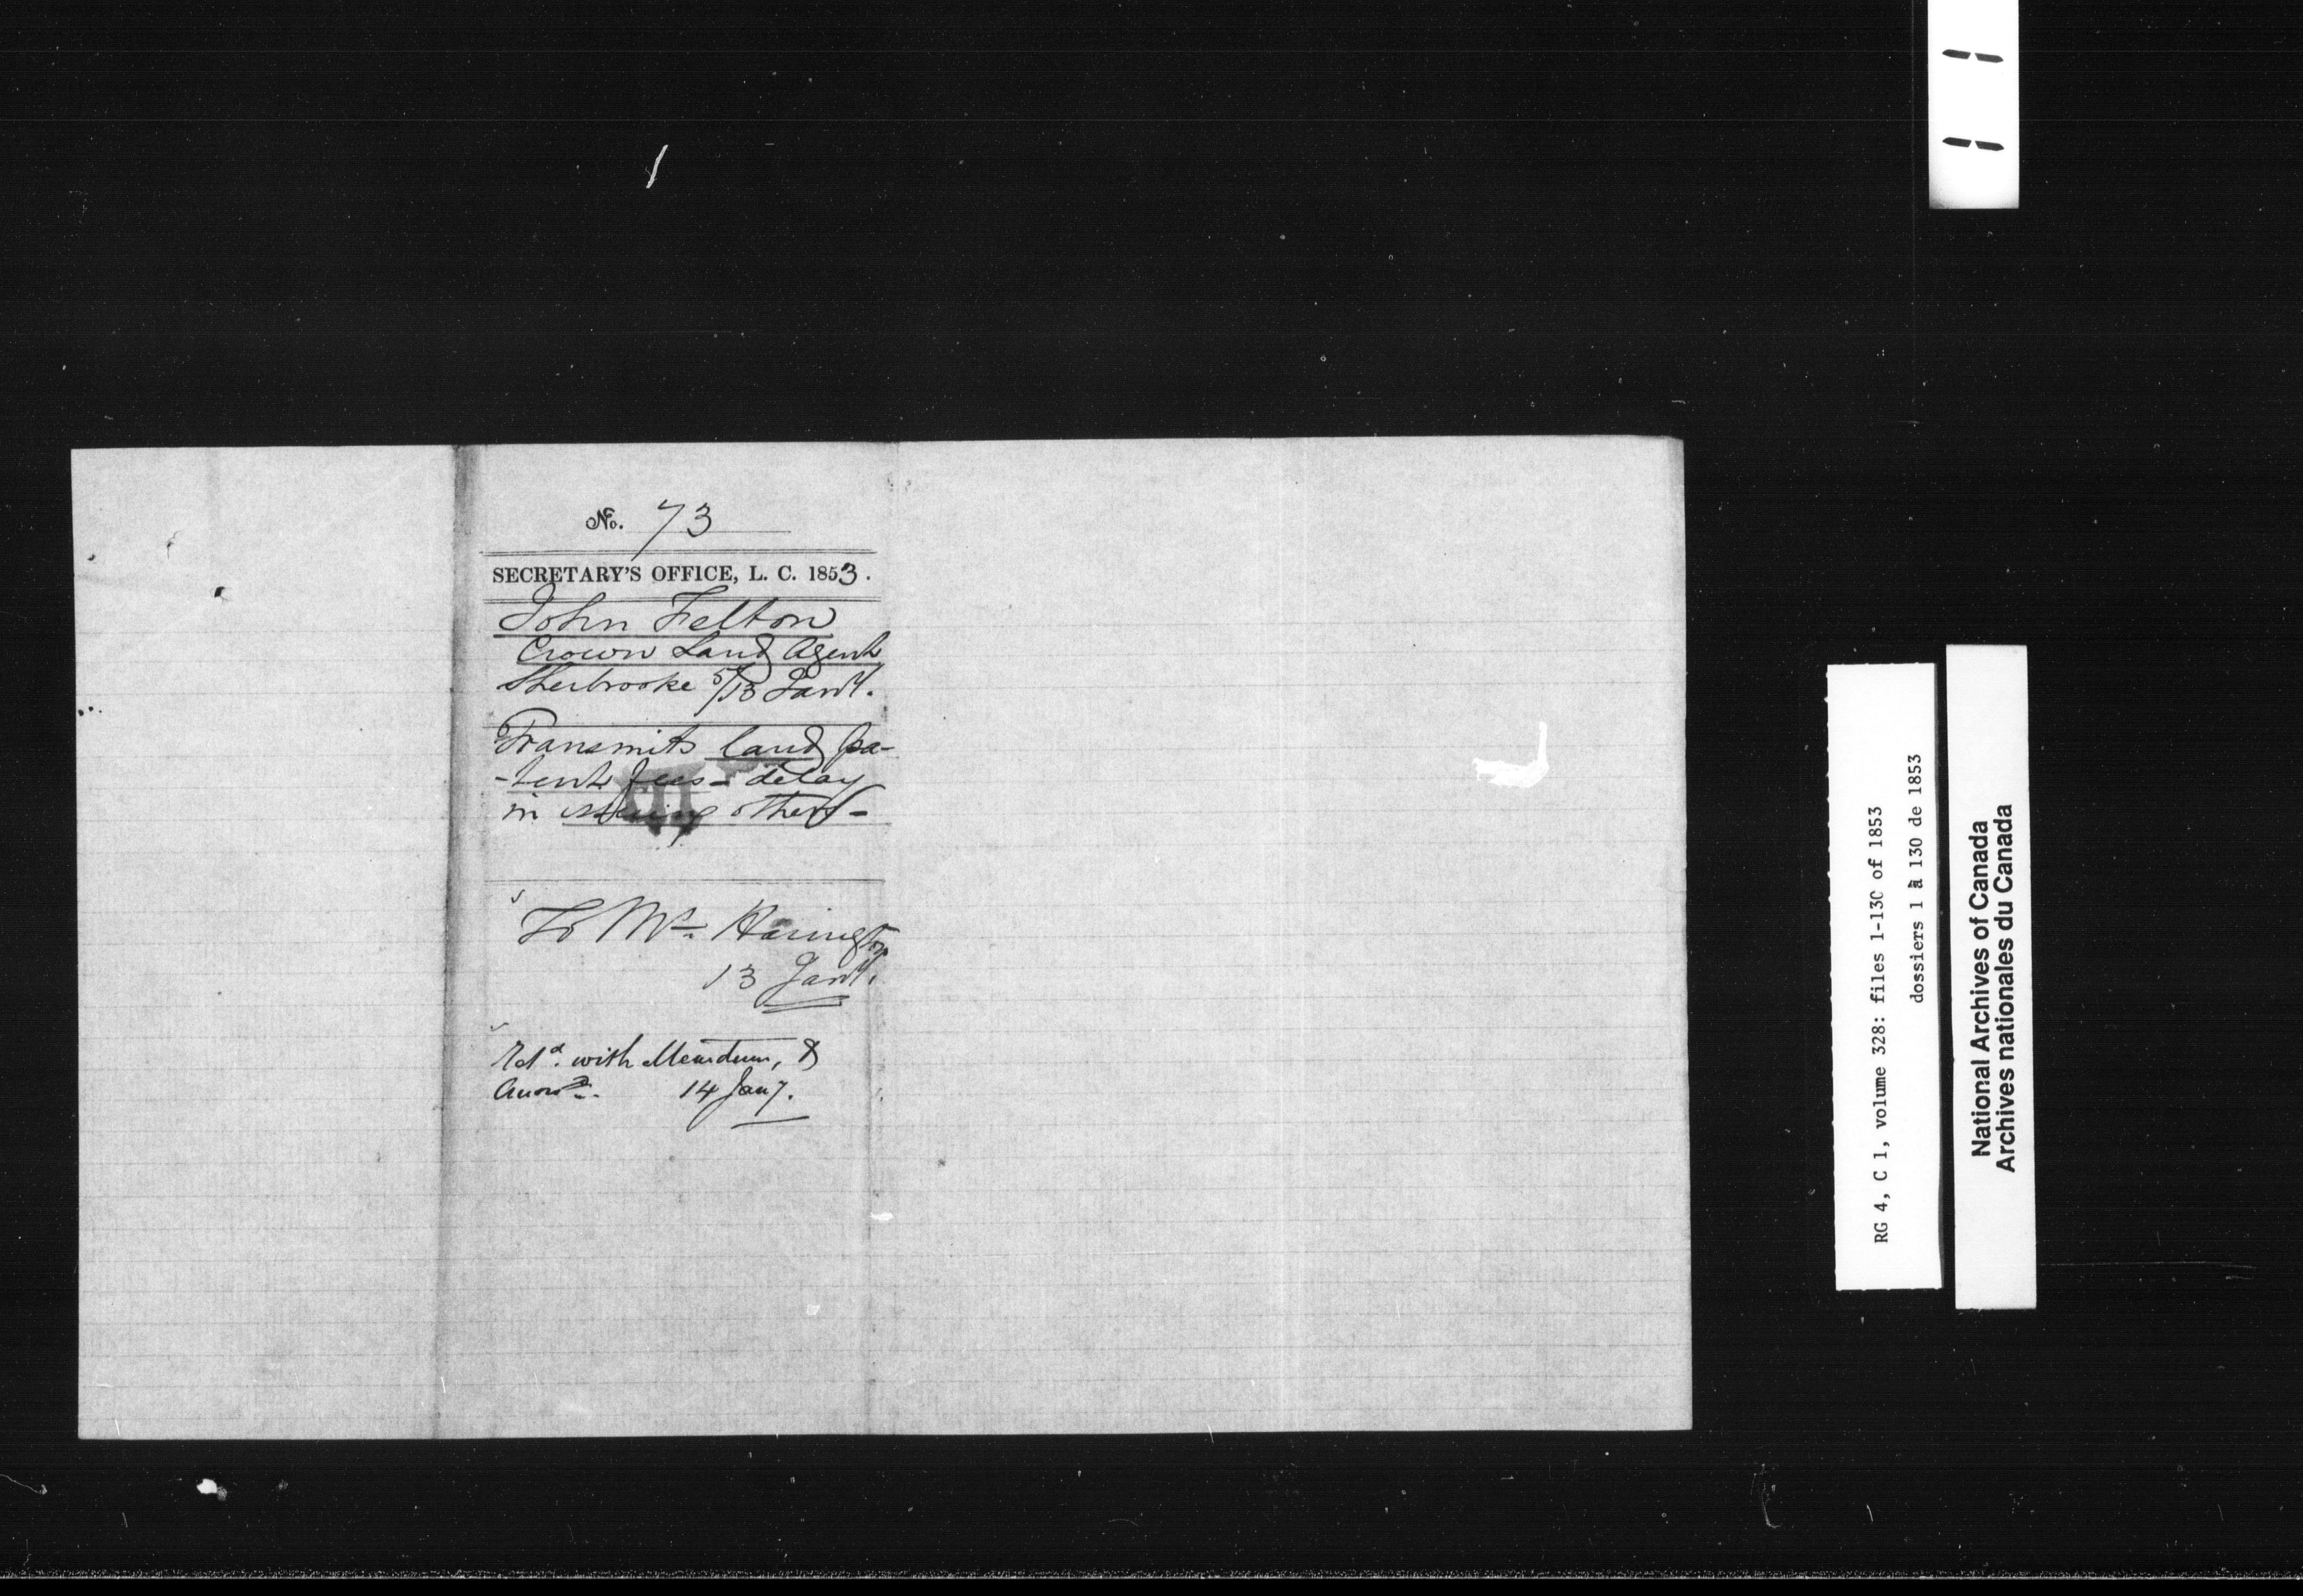 No. 73
SECRETARY'S OFFICE, L. C. 1853.
John Felton
Crown Land Agent
Sherbrooke 5/13 Jany.
Transmits land pa-
-tent fees - delay
in issuing others -
To Mr. Harington
13 Jany.
Retd. with Memdum, &
14 Jany.
RG 4, C 1, volume 328: files 1-130 of 1853
dossiers 1 à 130 de 1853
National Archives of Canada
Archives nationales du Canada